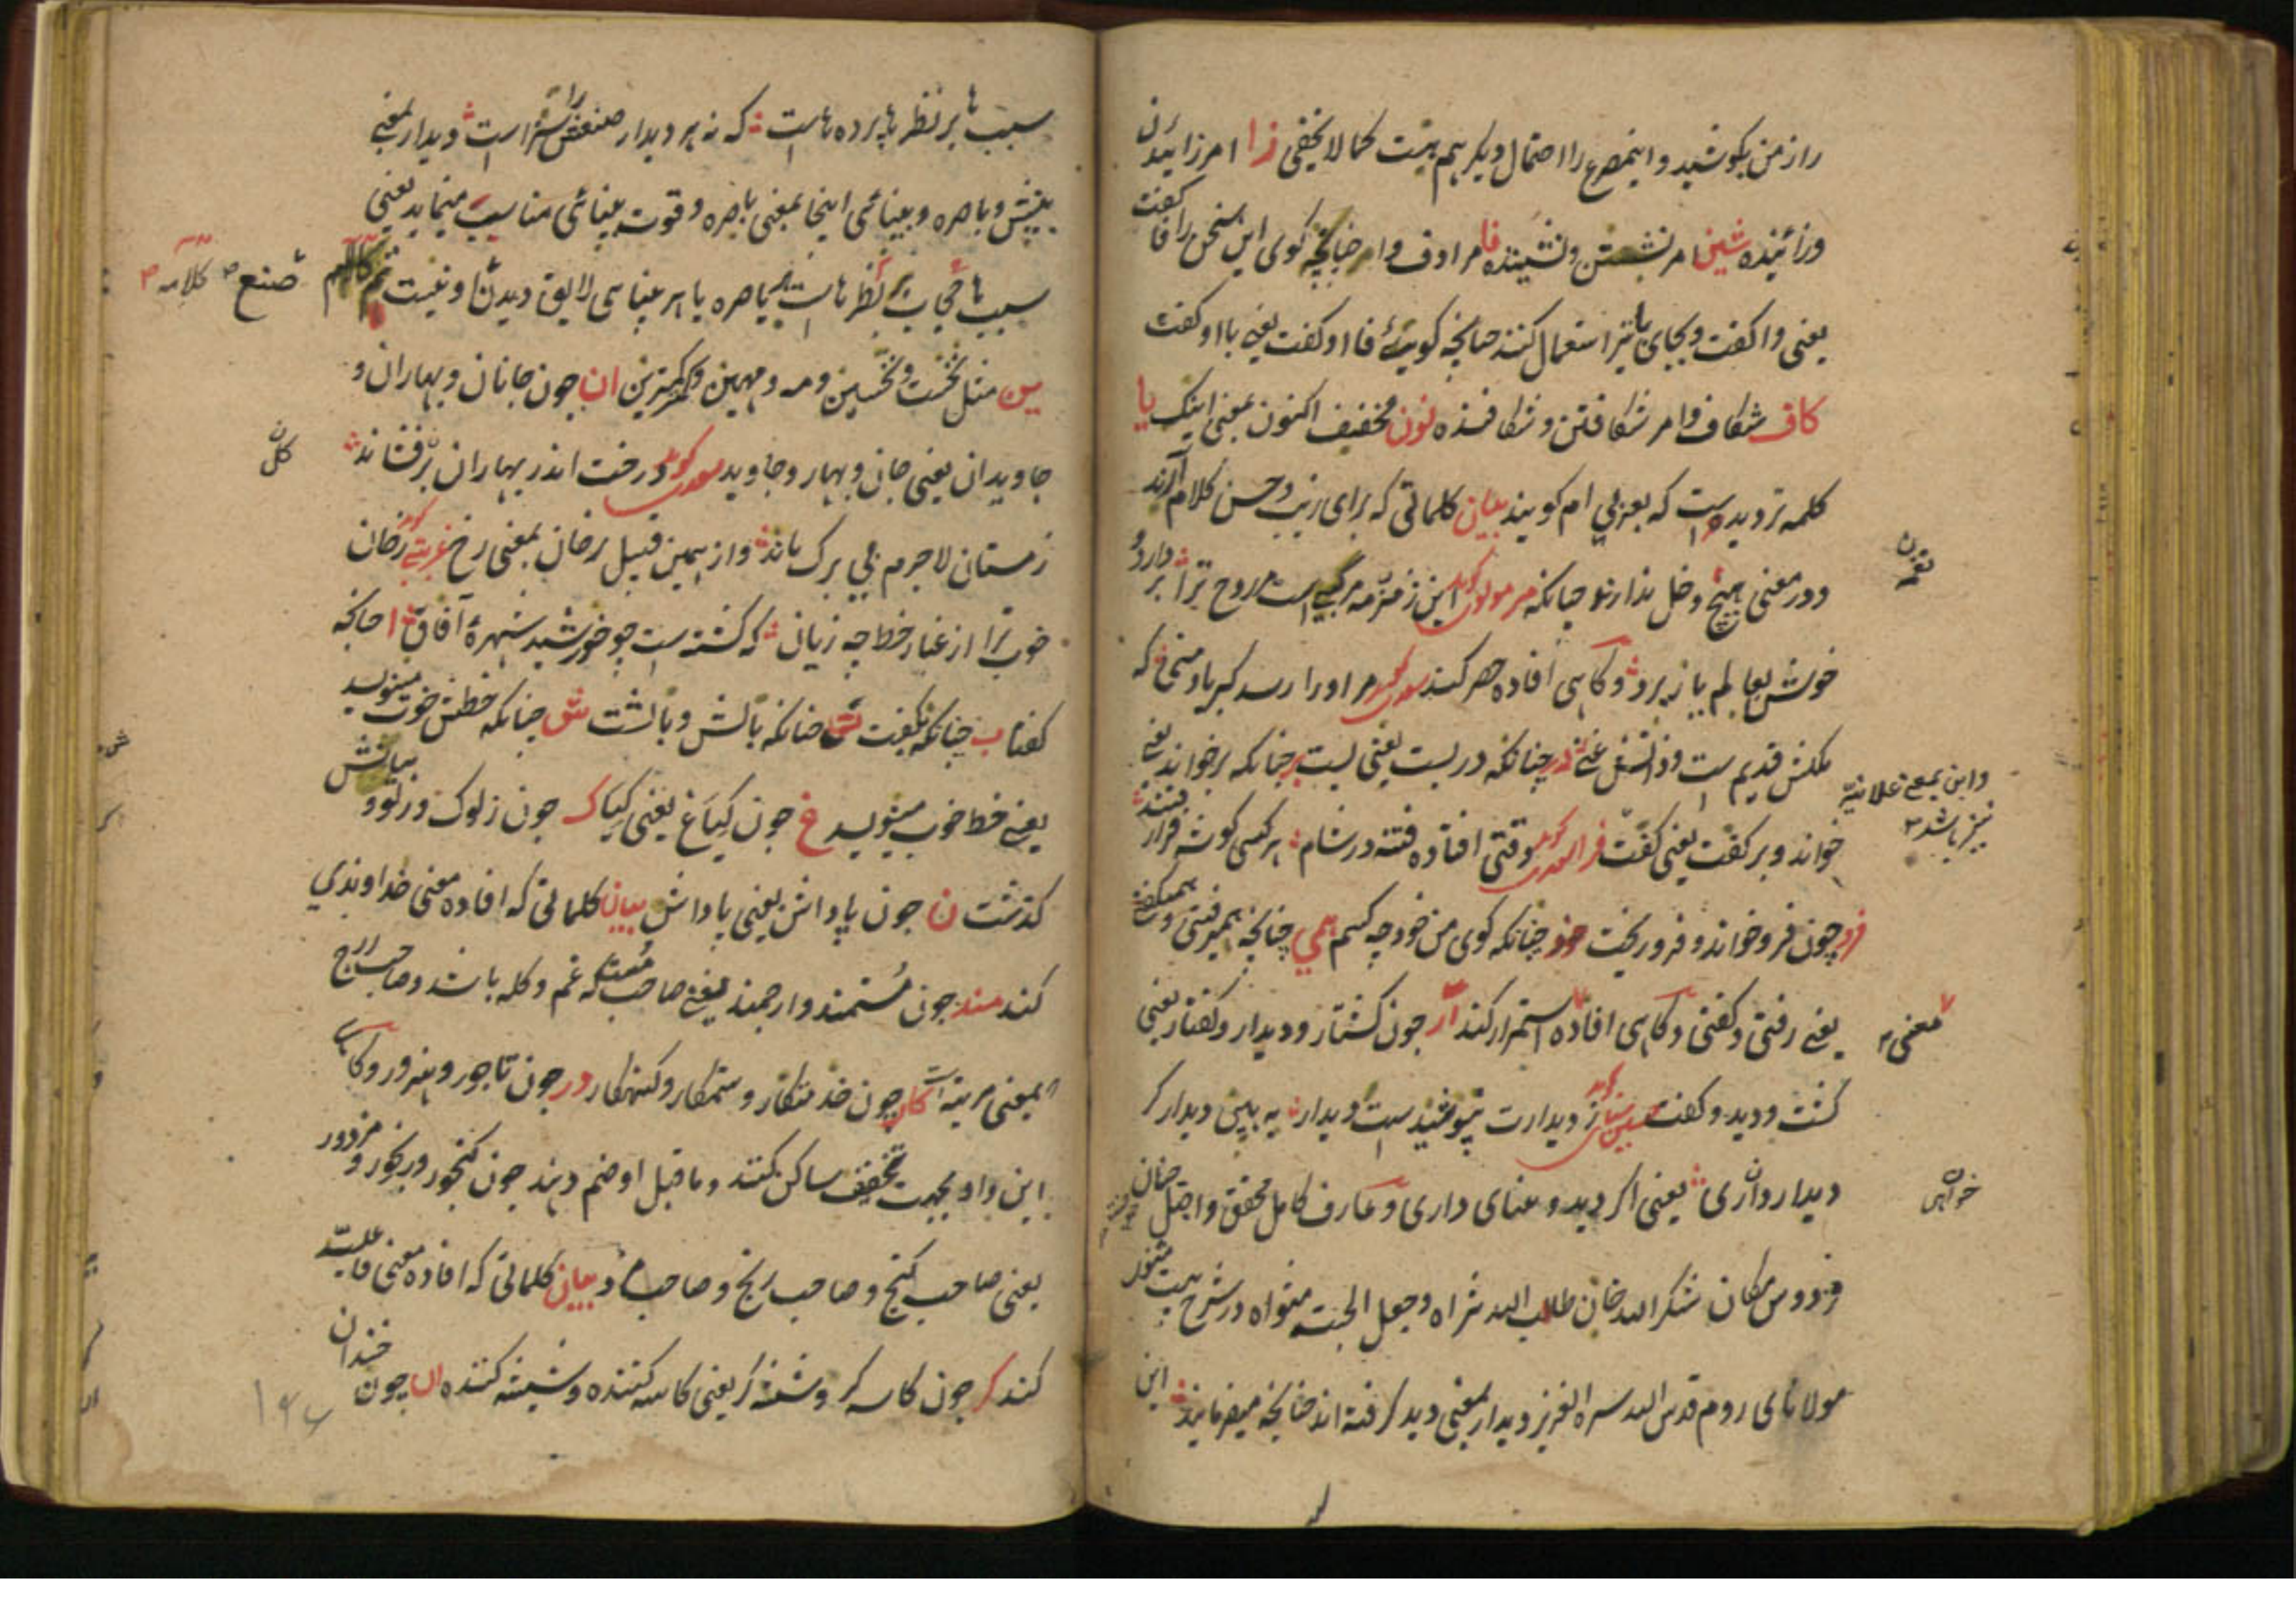 راز من بکوشید و اینمصرع را احتمال دیکر هم هست کما لا یخفی زا امر زائیدن
و زائینده شین امر نشستن و نشیننده فا مرادف وا چنانچه کوی این سخن را فا کفت
یعنی وا کفت و بجای با نیز استعمال کنند چنانچه کویی فا او کفت یعنی با او کفت
کاف شکاف و امر شکافتن و شکافنده نون مخفف اکنون بمعنی اینک یا
کلمه تردیدست که بعربی ام کویند بیان کلماتی که برای زیب و حسن کلام آرند
و در معنی هیچ دخل ندارند چنانکه مر مولوی کوید این زمزمه مرکبیست مر روح ترا بردارد و
خوش بعالم یار برد و کاهی افاده حصر کند سعدی کوید مر او را رسد کبریا و منی که
ملکش قدیم ست و ذاتش غنی در چنانکه در بست یعنی بست بر چنانکه بر خواند یعنی
خواند و بر کفت یعنی کفت فرا سعدی کوید وقتی افتاد فتنه در شام هر کسی کوشه فرا رفتند
فرو چون فرو خواند و فرو ریخت خود چنانکه کوی من خود چه کسم همی چنانچه همیرفتی و همیکفتی
یعنی رفتی و کفتی و کاهی افاده استمرار کند آر چون کشتار و دیدار و کفتار یعنی
کشت و دید و کفت حسین ثنائی کوید ز دیدارت نپوشیدست دیدار به بین دیدار کر
دیدار داری یعنی اکر دید و بینای داری و عارف کامل محقق واصل
فردوس مکان شکر الله خان طاب الله ثراه و جعل الجنت مثواه در شرح بیت مثنوی
مولانای روم قدس الله سره العزیز دیدار بمعنی دید کرفته اند چنانچه میفرمایند این
بقربن
و این بمعنی علانیه
نیز باشد
معنی
خواهی
سببها بر نظرها پرده هاست که نه هر دیدار صنعش را سزاست دیدار بمعنی
بینش و باصره و بینائی اینجا بمعنی باصره و قوت بینائی مناسب مینماید یعنی
سببها حجاب بر نظرهاست هر باصره یا هر بینایی لایق دیدن او نیست تم کلامه
صنع کلامه
ین مثل نخست و نخستین و مه و مهین و کمترین ان چون جانان و بهاران و
جاویدان یعنی جان و بهار و جاوید سعدی کوید درخت اندر بهاران بر فشاند
کل
زمستان لاجرم بی برک ماند و از همین قبیل رخان بمعنی رخ غربتی کوید رخان
خوب ترا از غبار خط چه زیان که کشته ست چو خورشید شهره آفاق ا چنانچه
کفتا ب چنانکه بکفت ت چنانکه بالش و بالشت ش چنانکه خطش خوب مینویسد
یعنی خط خوب مینویسد غ چون کیاغ یعنی کیا ک چون زلوک و زلو
کذشت ن چون پاداشن یعنی پاداش بیان کلماتی که افاده معنی خداوندی
کند مند چون مستمند و ارجمند یعنی صاحب مست که غم و کله باشد و صاحب ارج
بمعنی مرتبه است کار چون خدمتکار و ستمکار و کنهکار ور چون تاجور و هنرور و کاهی
این واو بجهت تخفیف ساکن کنند و ما قبل او ضم دهند چون کنجور و رنجور و مزدور
یعنی صاحب کنج و صاحب رنج و صاحب مزد بیان کلماتی که افاده معنی فاعلیت
کند کر چون کاسه کر و شیشه کر یعنی کاسه کننده و شیشه کننده ان چون خندان